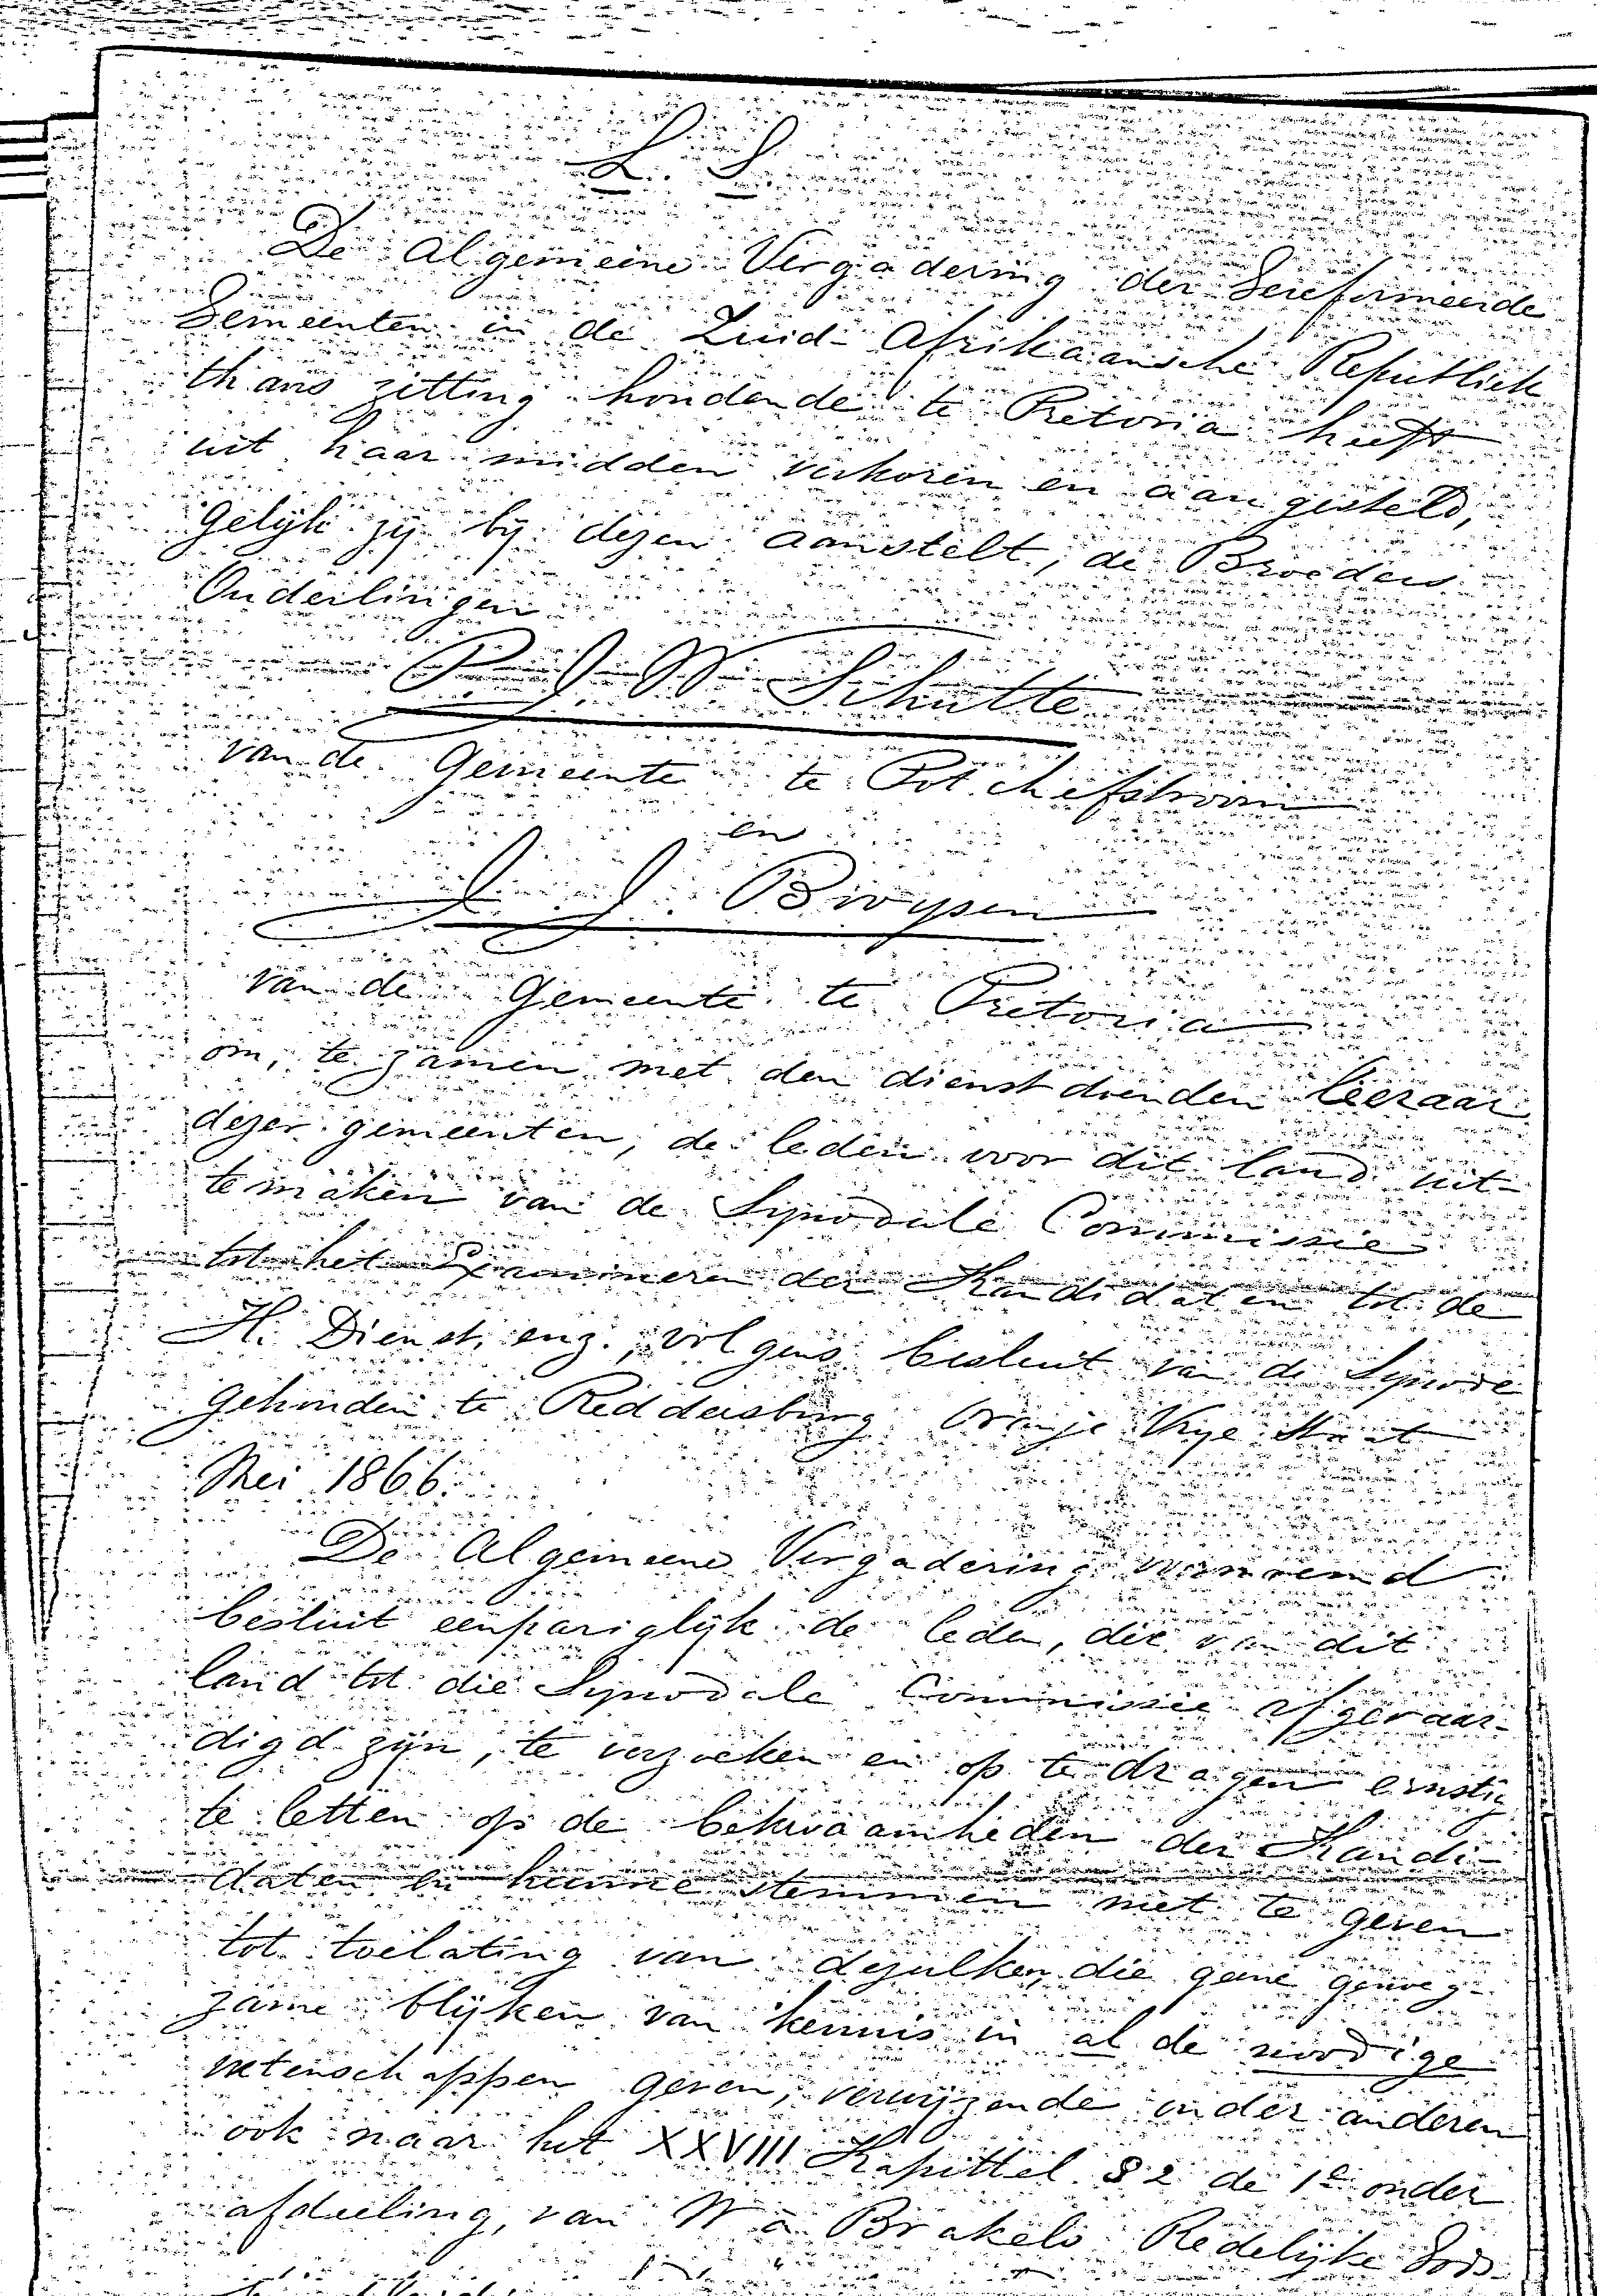 L. S.
De Algemeene Vergadering der Gereformeerde
Gemeenten in de Zuid-Afrikaansche Republiek
thans zitting houdende te Pretoria heeft
uit haar midden verkoren en aangesteld,
Gelijk zij by dezen aanstelt, de Broeders
Ouderlingen
P J W Schutte
van de Gemeente te Potchefstroom
en
J J Booysen
van de Gemeente te Pretoria
om, te zamen met den dienstdoenden Leeraar
dezer gemeenten, de leden voor dit land uit-
temaken van de Synodale Commissie
tot het Examineren der Kandidaten tot de
H. Dienst, enz., volgens besluit van de Synode
gehouden te Reddersburg Oranje Vrye Staat
Mei 1866.
De Algemeene Vergadering voornoemd
besluit eenpariglijk de leden, die van dit
land tot die Synodale Commissie afgevaar-
digd zijn, te verzoeken en op te dragen ernstig
te letten op de bekwaamheden der Kandi-
daten en hunne stemmen niet te geven
tot toelating van dezulken, die geene genoeg-
zame blijken van kennis in al de noodige
wetenschappen geven, verwijzende onder anderen
ook naar het XXVIII Kapittel § 2 de 1e onder
afdeeling, van W à Brakels Redelijke Gods-